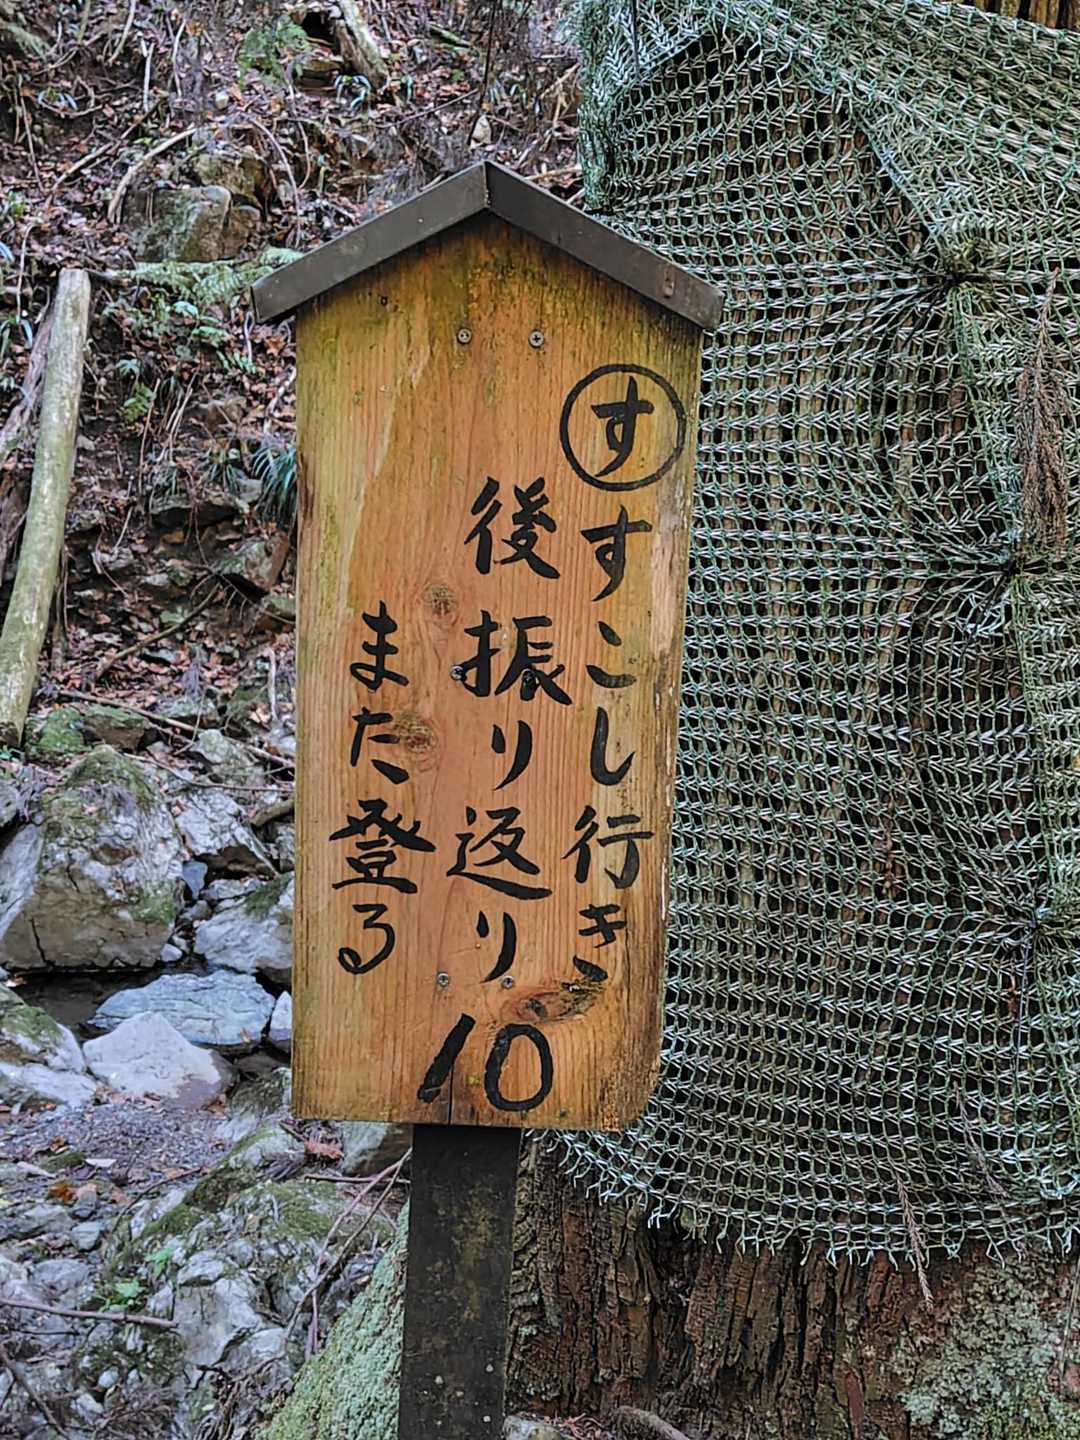 す
すこし行き
後振り返り
また登る
10